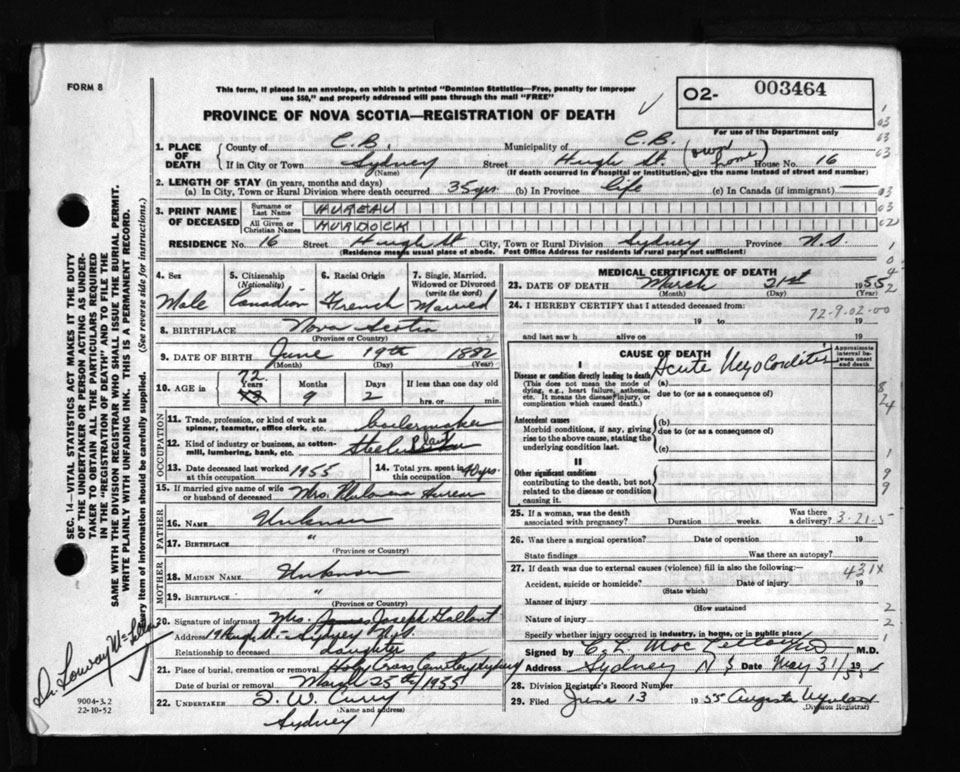 FORM 8
This form, if placed in an envelope, on which is printed "Dominion Statistics—Free, penalty for improper
use $50," and properly addressed will pass through the mail "FREE"
PROVINCE OF NOVA SCOTIA—REGISTRATION OF DEATH
02- 003464
For use of the Department only
1. PLACE OF DEATH County of C.B. Municipality of C.B.
If in City or Town Sydney Street Hugh St. (own home) House No. 16
(Name) (If death occurred in a hospital or institution, give the name instead of street and number)
2. LENGTH OF STAY (in years, months and days)
(a) In City, Town or Rural Division where death occurred 35 yrs (b) In Province life (c) In Canada (if immigrant)
3. PRINT NAME OF DECEASED Surname or Last Name HUREAU
All Given or Christian Names MURDOCK
RESIDENCE No. 16 Street Hugh St City, Town or Rural Division Sydney Province N.S.
(Residence means usual place of abode. Post Office Address for residents in rural parts not sufficient)
4. Sex 5. Citizenship (Nationality) 6. Racial Origin 7. Single, Married, Widowed or Divorced (write the word)
Male Canadian French Married
8. BIRTHPLACE Nova Scotia
(Province or Country)
9. DATE OF BIRTH June 19th 1882
(Month) (Day) (Year)
10. AGE in 72 Years 9 Months 2 Days If less than one day old
hrs. or min.
OCCUPATION
11. Trade, profession, or kind of work as spinner, teamster, office clerk, etc. boilermaker
12. Kind of industry or business, as cotton-mill, lumbering, bank, etc. Steel Plant
13. Date deceased last worked at this occupation 1955 14. Total yrs. spent in this occupation 40 yrs
15. If married give name of wife or husband of deceased Mrs. Hureau
FATHER
16. NAME Unknown
17. BIRTHPLACE "
(Province or Country)
MOTHER
18. MAIDEN NAME Unknown
19. BIRTHPLACE "
(Province or Country)
20. Signature of informant Mrs. James Joseph Gallant
Address 19 Hugh St.- Sydney N.S.
Relationship to deceased daughter
21. Place of burial, cremation or removal Holy Cross Cemetery Sydney
Date of burial or removal March 25th/1955
22. UNDERTAKER T. W. Curry
(Name and address)
Sydney
MEDICAL CERTIFICATE OF DEATH
23. DATE OF DEATH March 21st 1955
(Month) (Day) (Year)
24. I HEREBY CERTIFY that I attended deceased from
19 to 19
72-9-02-00
and last saw h alive on 19
CAUSE OF DEATH
Approximate interval between onset and death
I
Disease or condition directly leading to death
(This does not mean the mode of dying, e.g., heart failure, asthenia, etc. It means the disease, injury, or complication which caused death.)
(a) Acute Myocarditis
due to (or as a consequence of)
Antecedent causes
Morbid conditions, if any, giving rise to the above cause, stating the underlying condition last.
(b)
due to (or as a consequence of)
(c)
II
Other significant conditions
contributing to the death, but not related to the disease or condition causing it.
25. If a woman, was the death associated with pregnancy? Duration weeks. Was there a delivery? 3-21-5
26. Was there a surgical operation? Date of operation 19
State findings Was there an autopsy?
27. If death was due to external causes (violence) fill in also the following: 431X
Accident, suicide or homicide? Date of injury 19
(State which)
Manner of injury
(How sustained
Nature of injury
Specify whether injury occurred in industry, in home, or in public place
Signed by M.D.
Address Sydney N S Date May 31/55
28. Division Registrar's Record Number
29. Filed June 13 1955
(Division Registrar)
SEC. 14—VITAL STATISTICS ACT MAKES IT THE DUTY
OF THE UNDERTAKER OR PERSON ACTING AS UNDER-
TAKER TO OBTAIN ALL THE PARTICULARS REQUIRED
IN THE "REGISTRATION OF DEATH" AND TO FILE THE
SAME WITH THE DIVISION REGISTRAR WHO SHALL ISSUE THE BURIAL PERMIT.
WRITE PLAINLY WITH UNFADING INK. THIS IS A PERMANENT RECORD.
Every item of information should be carefully supplied. (See reverse side for instructions.)
9004-3.2
22-10-52